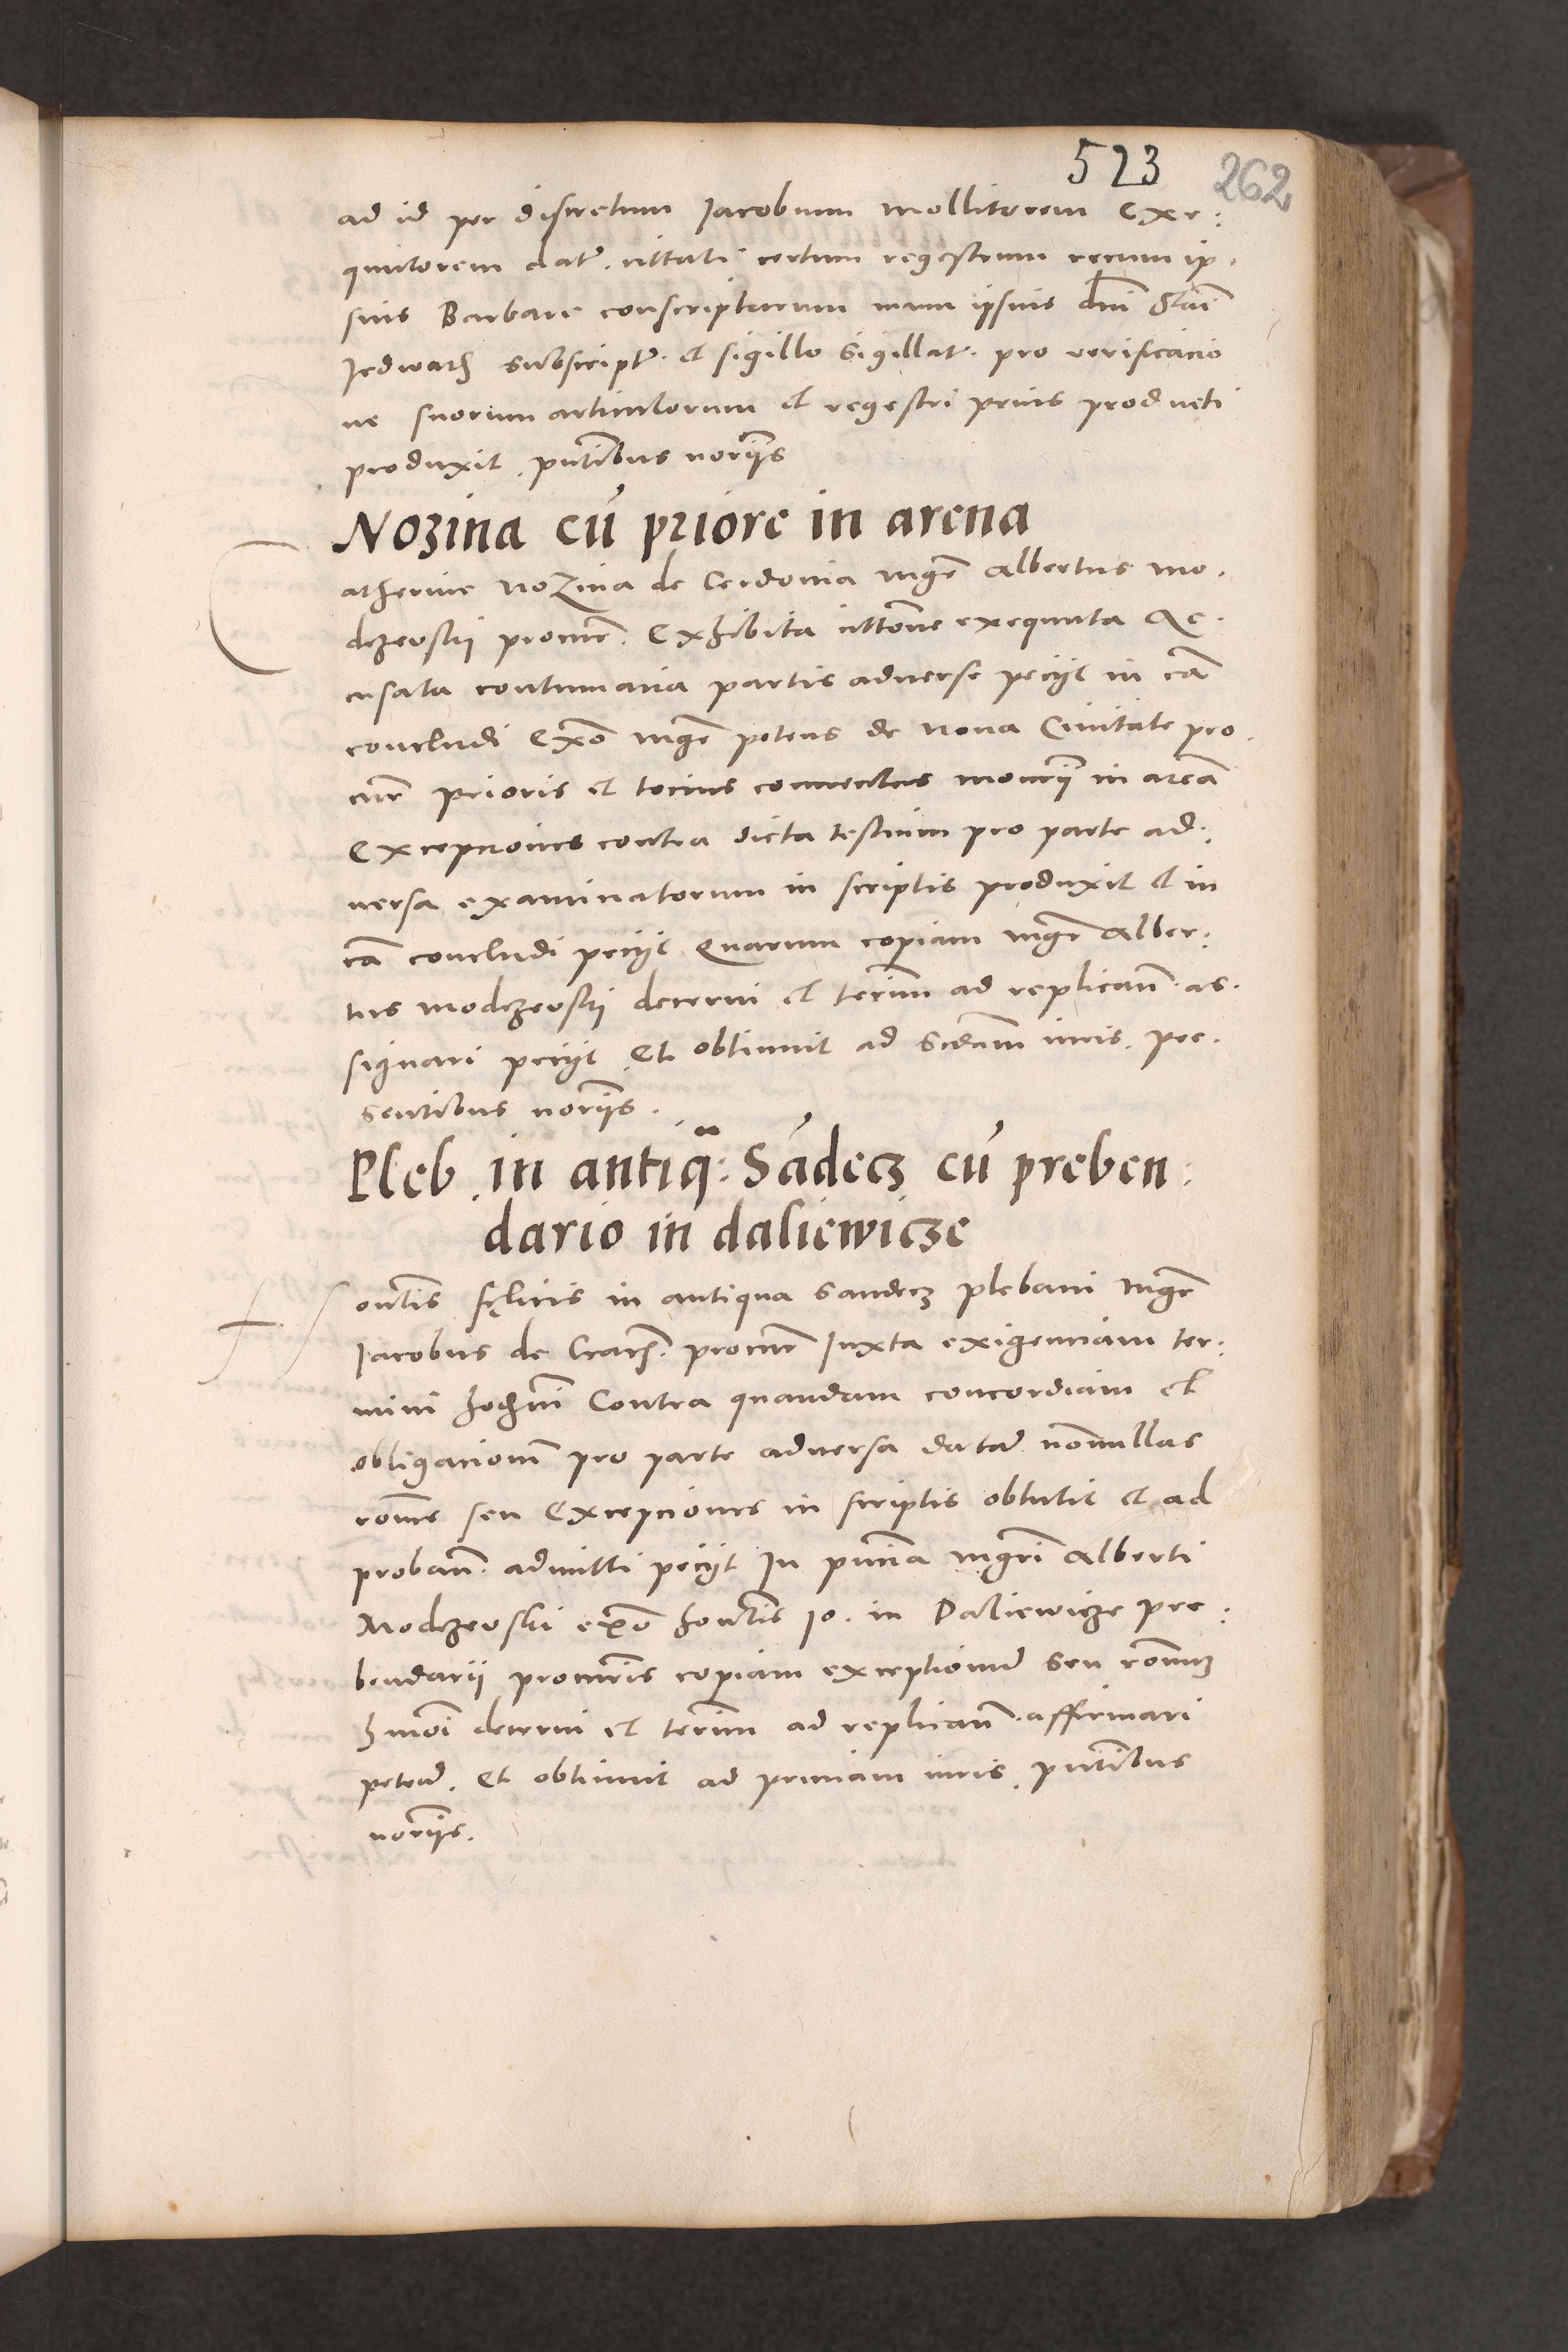 523 262
ad id per discretum Jacobum Mollitorem Exe:
quutorem dat. citati certum regestrum rerum ip.
sius Barbare conscriptarum manu ipsius dni Stani
Jedwath subscript. et sigillo sigillat. pro verificacio
ne suorum articulorum et regestri prius producti
produxit. pntibus noriis
Nozina cu priore in arena
C
atherine Nozina de Cerdonia mgr Albertus mo.
dczeoski procur. Exhibita cittone exequuta Ac.
cusata contumacia partis adverse peciit in ca
concludi Exo mgr petrus de Nova Civitate pro.
cur prioris et tocius conventus monrii in arena
Excepciones contra dicta testium pro parte ad:
versa examinatorum in scriptis produxit et in
ca concludi peciit Quarum copiam mgr Alber:
tus modczeoski decerni et terim ad replicand. as.
signari peciit Et obtinuit ad scdam iuris. pre.
sentibus noriis.
Pleb. in antiq: Sadecz cu preben:
dario in daliewicze
H
ontis felicis in antiqua Sandecz plebani mgr
Jacobus de Crach. procur Juxta exigenciam ter:
mini hodrni Contra quandam concordiam et
obligacionem pro parte adversa datam nonnullas
rones seu Excepciones in scriptis obtulit et ad
proband. admitti peciit In pncia mgri Alberti
Modczeoski exo hontis Jo. in Daliewicze pre:
bendarii procuris copiam exceptionum seu ronum
hmoi decerni et terim ad replicand. affirmari
petend. Et obtinuit ad primam iuris. pntibus
noriis.